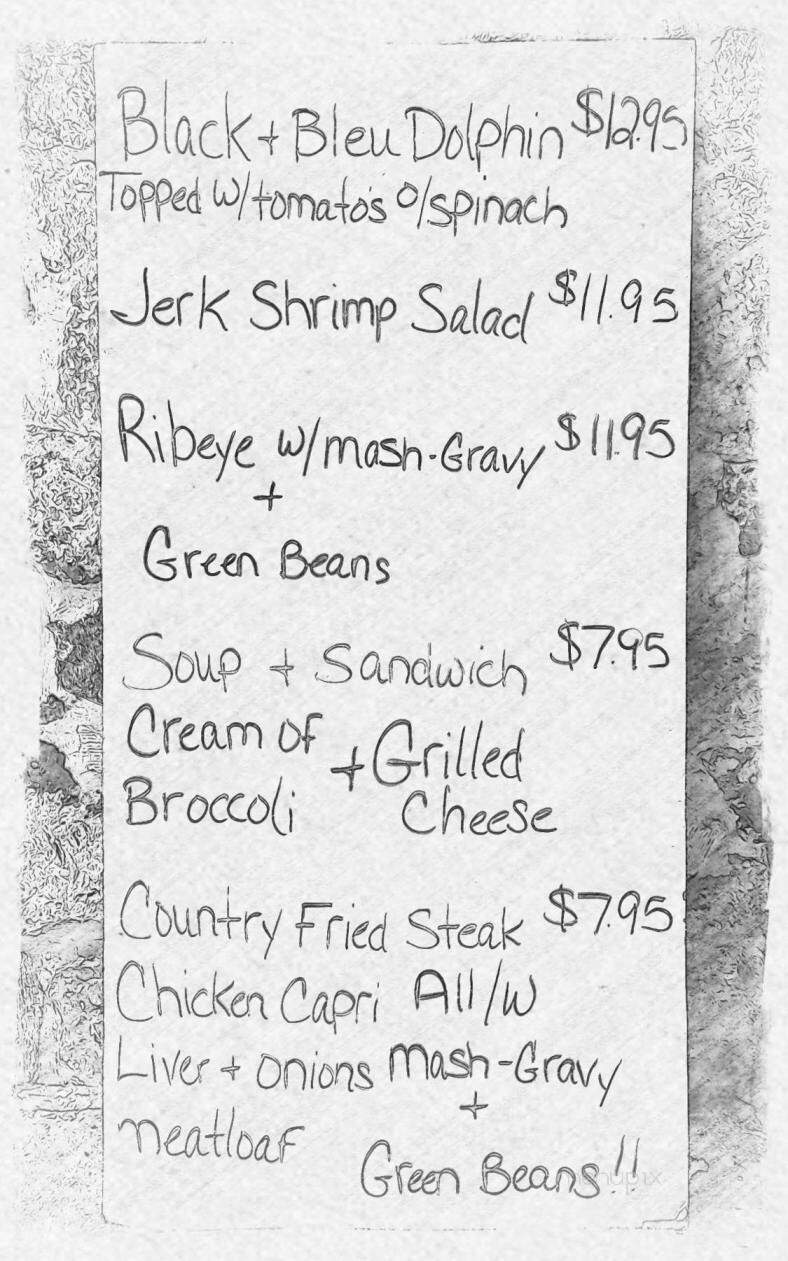 Black + Bleu Dolphin $12.95
Topped w/tomato's o/spinach
Jerk Shrimp Salad $11.95
Ribeye w/mash-Gravy $11.95
+
Green Beans
Soup + Sandwich $7.95
Cream of + Grilled
Broccoli Cheese
Country Fried Steak $7.95
Chicken Capri All/w
Liver + onions mash-Gravy
+
meatloaf
Green Beans!!